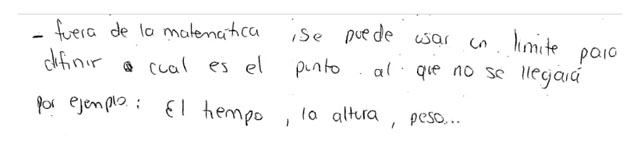 - fuera de la matematica ,se puede usar un limite para
difinir cual es el punto al que no se llegará
por ejemplo: El tiempo, la altura, peso...